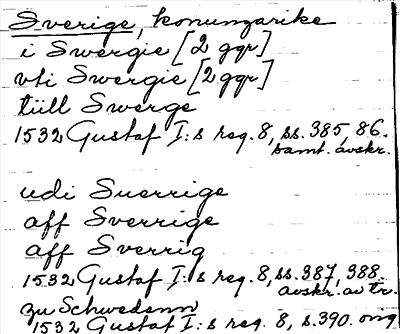 Sverige, konungarike
i Swergie [2 ggr]
vti Swergie [2 ggr]
tiill Swerge
1532 Gustaf I:s reg. 8, ss. 385, 86.
samt. avskr.
udi Suerrige
aff Sverrige
aff Sverrig
1532 Gustaf I:s reg. 8, ss. 387, 388.
avskr. av tr.
zu Schwedenn
1532 Gustaf I:s reg. 8, s. 390. orig